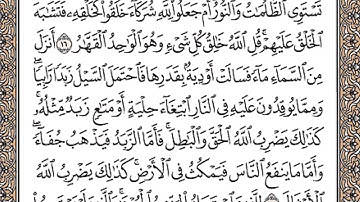 تَسْتَوِى ٱلظُّلُمَٰتُ وَٱلنُّورُ أَمْ جَعَلُوا۟ لِلَّهِ شُرَكَآءَ خَلَقُوا۟ كَخَلْقِهِۦ فَتَشَٰبَهَ
ٱلْخَلْقُ عَلَيْهِمْ ۚ قُلِ ٱللَّهُ خَٰلِقُ كُلِّ شَىْءٍ وَهُوَ ٱلْوَٰحِدُ ٱلْقَهَّٰرُ ١٦ أَنزَلَ
مِنَ ٱلسَّمَآءِ مَآءً فَسَالَتْ أَوْدِيَةٌۢ بِقَدَرِهَا فَٱحْتَمَلَ ٱلسَّيْلُ زَبَدًا رَّابِيًا ۚ
وَمِمَّا يُوقِدُونَ عَلَيْهِ فِى ٱلنَّارِ ٱبْتِغَآءَ حِلْيَةٍ أَوْ مَتَٰعٍ زَبَدٌ مِّثْلُهُۥ ۚ
كَذَٰلِكَ يَضْرِبُ ٱللَّهُ ٱلْحَقَّ وَٱلْبَٰطِلَ ۚ فَأَمَّا ٱلزَّبَدُ فَيَذْهَبُ جُفَآءً ۖ
وَأَمَّا مَا يَنفَعُ ٱلنَّاسَ فَيَمْكُثُ فِى ٱلْأَرْضِ ۚ كَذَٰلِكَ يَضْرِبُ ٱللَّهُ